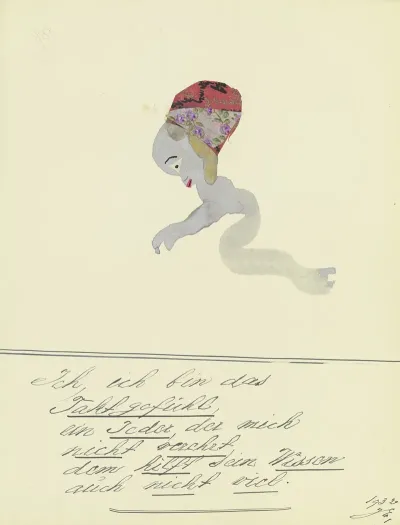 Ich, ich bin das
Taktgefühl,
ein Jeder, der mich
nicht
dem hilft sein Wissen
auch nicht viel.
1932